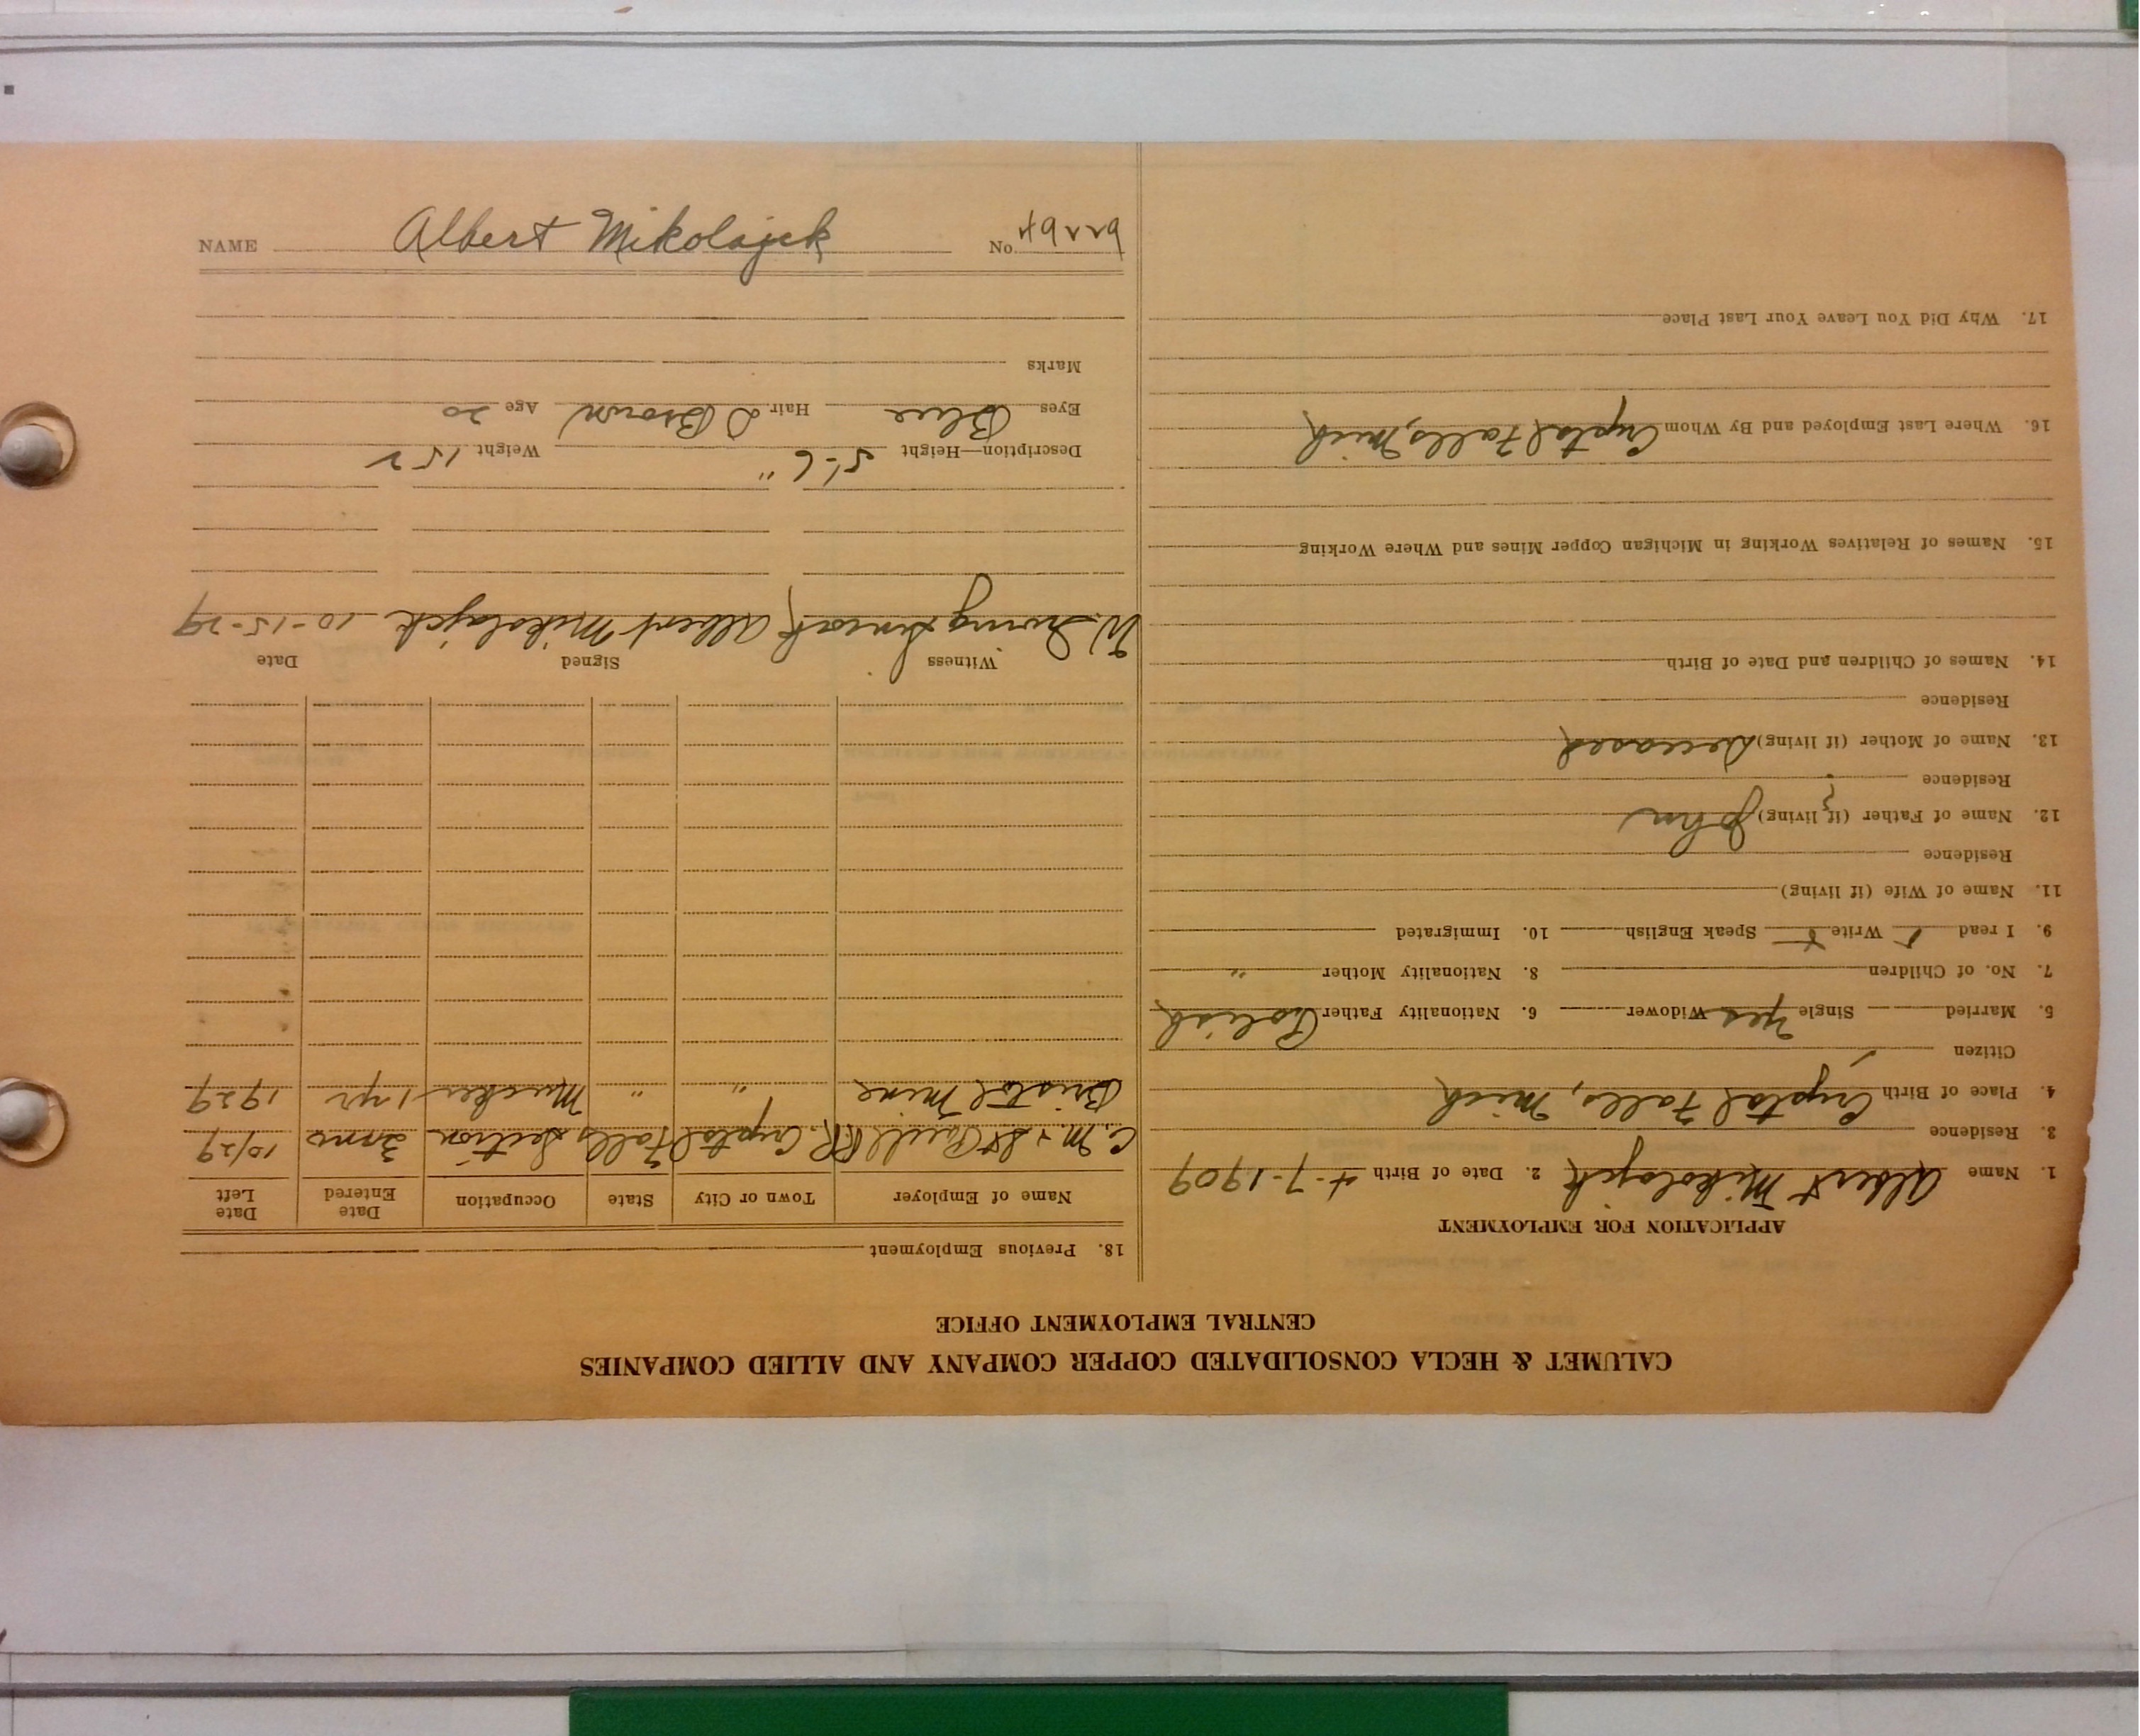 CALUMET & HECLA CONSOLIDATED COPPER COMPANY AND ALLIED COMPANIES
CENTRAL EMPLOYMENT OFFICE
APPLICATION FOR EMPLOYMENT
1. Name Albert Mikolajek 2. Date of Birth 4-7-1909
3. Residence
4. Place of Birth Crystal Falls, Mich
Citizen
5. Married Single Yes Widower 6. Nationality Father Polish
7. No. of Children 8. Nationality Mother "
9. I read Write Speak English 10. Immigrated
11. Name of Wife (if living)
Residence
12. Name of Father (if living) John
Residence
13. Name of Mother (if living) Deceased
Residence
14. Names of Children and Date of Birth
15. Names of Relatives Working in Michigan Copper Mines and Where Working
16. Where Last Employed and By Whom Crystal Falls, Mich
17. Why Did You Leave Your Last Place
18. Previous Employment
Name of Employer Town or City State Occupation Date Entered Date Left
C. M. & St Paul RR Crystal Falls Section 3 mo 10/29
Bristol Mine " " Mucker 1 yr 1929
Witness Signed Date
W. Albert Mikolajek 10-15-29
Description—Height 5'-6" Weight 152
Eyes Blue Hair D Brown Age 20
Marks
NAME Albert Mikolajek No.